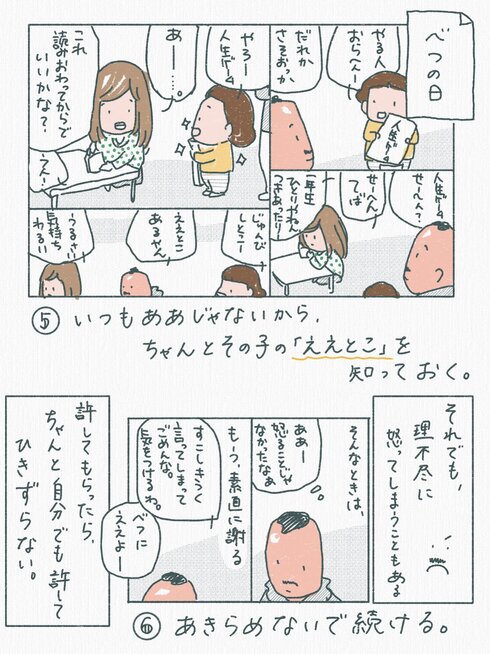 べつの日
やる人
おらへんー
だれか
さそおっか
人生ゲーム
やろー
人生ゲーム
あー……。
これ
読みおわってからで
いいかな？
人生ゲーム
せーへん？
せーへん
てば
ひとりやねん
つきあったりー
じゅんび
しとこー
ええとこ
あるやん
うるさい
気持ち
わるい
⑤ いつもああじゃないから、
ちゃんとその子の「ええとこ」を
知っておく。
それでも、
理不尽に
怒ってしまうこともある
そんなときは、
ああー
怒ることじゃ
なかったなぁ
もーう、素直に謝る
すこしきつく
言ってしまって
ごめんな。
気をつけるわ。
べつに
ええよー
許してもらったら、
ちゃんと自分でも許して
ひきずらない。
⑥ あきらめないで続ける。